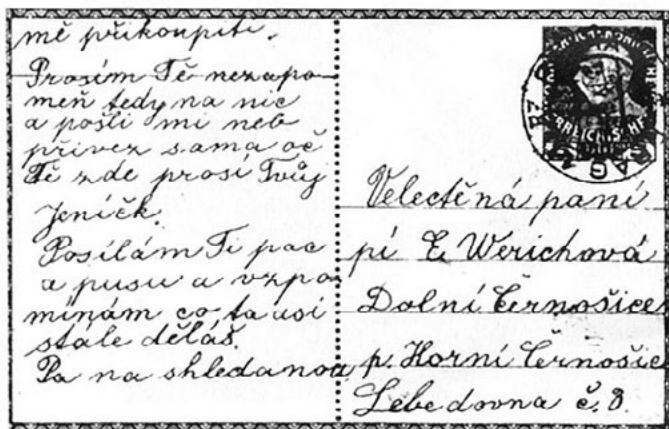 mě přikoupiti.
Prosím Tě nezapo-
meň tedy na nic
a pošli mi neb
přivez sama oč
Tě zde prosí Tvůj
Jeníček.
Posílám Ti pac
a pusu a vzpo-
mínám co ta asi
stále děláš.
Pa na shledanou
Velectěná paní
pí E. Werichová
Dolní Černošice
p. Horní Černošice
Lebedovna č. 8.